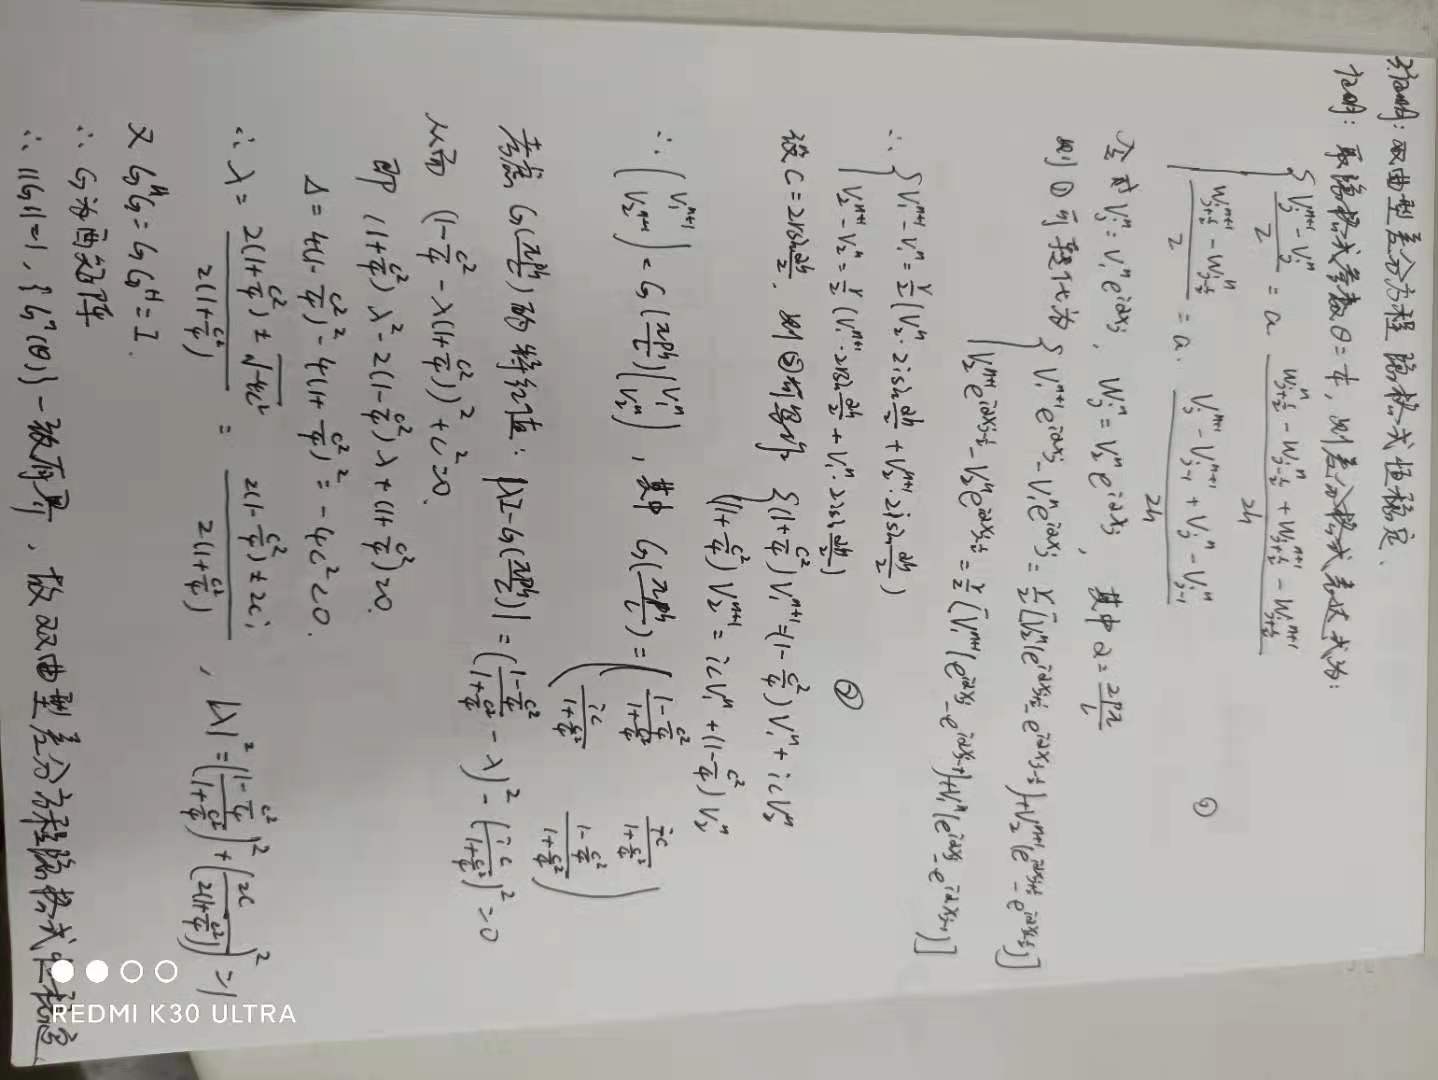 3.证明:双曲型差分方程隐格式恒稳定.
证明:取隐格式参数θ=1/4,则差分格式表达式为:
{ (V_j^{n+1} - V_j^n)/τ = a · (W_{j+1/2}^n - W_{j-1/2}^n + W_{j+1/2}^{n+1} - W_{j-1/2}^{n+1})/2h
(W_{j-1/2}^{n+1} - W_{j-1/2}^n)/τ = a · (V_j^{n+1} - V_{j-1}^{n+1} + V_j^n - V_{j-1}^n)/2h ①
令 V_j^n = V_1^n e^{iαx_j}, W_j^n = V_2^n e^{iαx_j}, 其中 α = 2pπ/L
则①可转化为 { V_1^{n+1} e^{iαx_j} - V_1^n e^{iαx_j} = r/2 [V_2^n(e^{iαx_{j+1/2}} - e^{iαx_{j-1/2}}) + V_2^{n+1}(e^{iαx_{j+1/2}} - e^{iαx_{j-1/2}})]
V_2^{n+1} e^{iαx_{j-1/2}} - V_2^n e^{iαx_{j-1/2}} = r/2 [V_1^{n+1}(e^{iαx_j} - e^{iαx_{j-1}}) + V_1^n(e^{iαx_j} - e^{iαx_{j-1}})]
∴ { V_1^{n+1} - V_1^n = r/2 (V_2^n · 2i sin αh/2 + V_2^{n+1} · 2i sin αh/2)
V_2^{n+1} - V_2^n = r/2 (V_1^{n+1} · 2i sin αh/2 + V_1^n · 2i sin αh/2) ②
设 C = 2r sin αh/2, 则②可写成 { (1+c²/4)V_1^{n+1} = (1-c²/4)V_1^n + icV_2^n
(1+c²/4)V_2^{n+1} = icV_1^n + (1-c²/4)V_2^n
∴ (V_1^{n+1} V_2^{n+1}) = G(2ph/L)(V_1^n V_2^n), 其中 G(2ph/L) = ((1-c²/4)/(1+c²/4) ic/(1+c²/4)
ic/(1+c²/4) (1-c²/4)/(1+c²/4))
考虑G(2ph/L)的特征值: |λI-G(2ph/L)| = ((1-c²/4)/(1+c²/4) - λ)² - (ic/(1+c²/4))² = 0
从而 (1-c²/4 - λ(1+c²/4))² + c² = 0.
即 (1+c²/4)λ² - 2(1-c²/4)λ + (1+c²/4) = 0.
Δ = 4(1-c²/4)² - 4(1+c²/4)² = -4c² < 0.
∴ λ = (2(1-c²/4) ± √-4c²)/(2(1+c²/4)) = (2(1-c²/4) ± 2ci)/(2(1+c²/4)), |λ|² = ((1-c²/4)/(1+c²/4))² + (2c/(2(1+c²/4)))² = 1
又 G^H G = G G^H = I.
∴ G为酉矩阵
∴ ||G||=1, {G^n(θ)}一致有界, 故双曲型差分方程隐格式恒稳定
REDMI K30 ULTRA